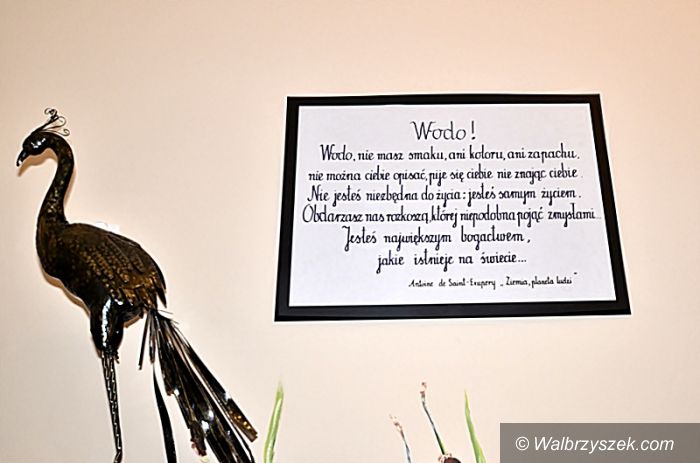 Wodo!
Wodo, nie masz smaku, ani koloru, ani zapachu,
nie można ciebie opisać, pije się ciebie nie znając ciebie.
Nie jesteś niezbędna do życia: jesteś samym życiem.
Obdarzasz nas rozkoszą, której niepodobna pojąć zmysłami...
Jesteś największym bogactwem,
jakie istnieje na świecie...
Antoine de Saint-Exupery „Ziemia, planeta ludzi"
© Walbrzyszek.com